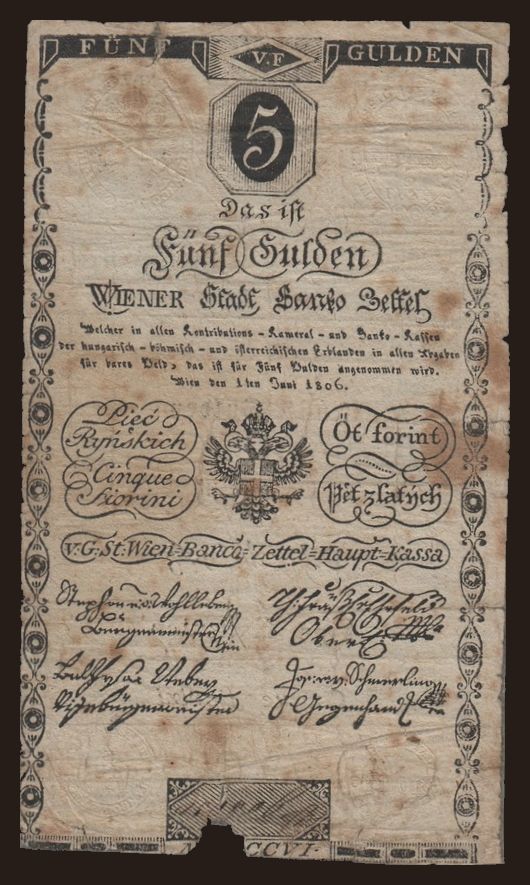 FÜNF V.F GULDEN
5
Das ist
Fünf Gulden
WIENER Stadt Banko Zettel
Welcher in allen Kontributions - Kameral - und Banko - Kassen
der hungarisch - böhmisch - und österreichischen Erblanden in allen Abgaben
für bares Geld, das ist für Fünf Gulden angenommen wird.
Wien den 1ten Juni 1806.
Pieć
Ryńskich
Öt forint
Cinque
Fiorini
Pět zlatých
v. G. St. Wien = Banco = Zettel = Haupt = Kassa
Stephan v. Wohlleben
Bürgermeister
v. Schmerling
CCVI.